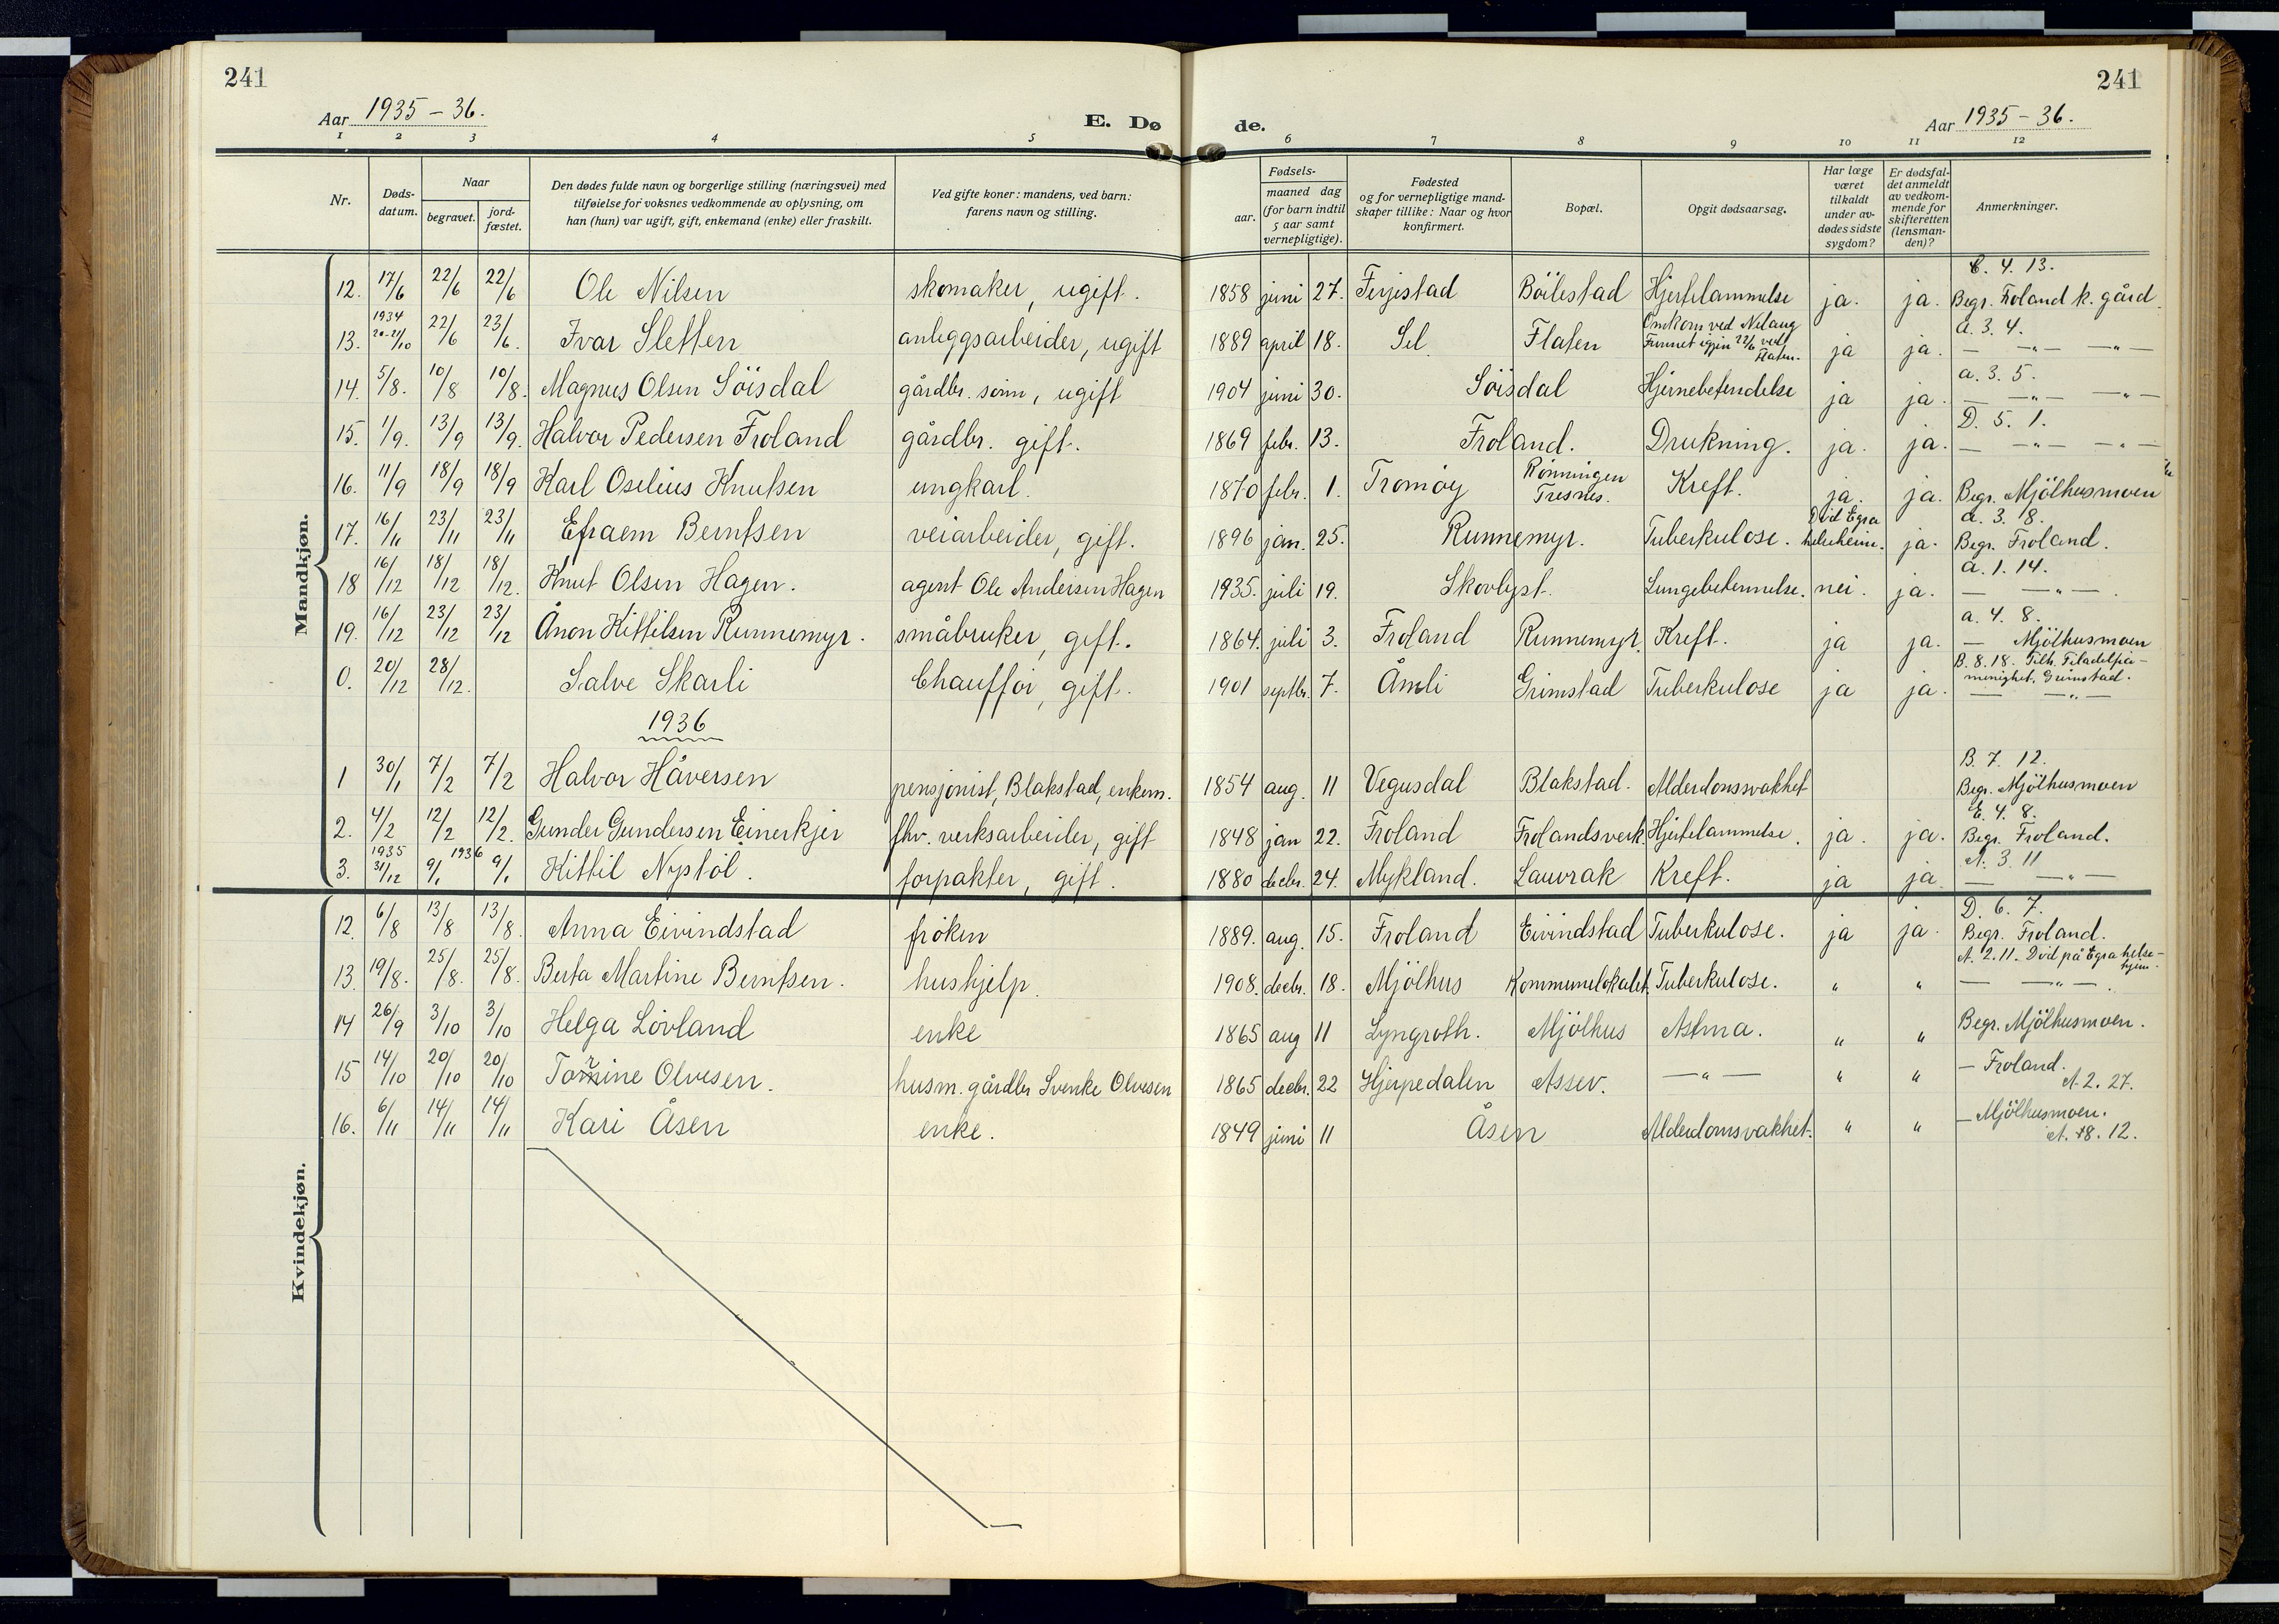 241
241
Aar 1935-36.
E. Dø
de.
Aar 1935-36.
1 2 3 4 5 6 7 8 9 10 11 12
Nr.
Døds-
datum.
Naar
begravet.
jord-
fæstet.
Den dødes fulde navn og borgerlige stilling (næringsvei) med
tilføielse for voksnes vedkommende av oplysning, om
han (hun) var ugift, gift, enkemand (enke) eller fraskilt.
Ved gifte koner: mandens, ved barn:
farens navn og stilling.
Fødsels-
aar.
maaned dag
(for barn indtil
5 aar samt
vernepligtige).
Fødested
og for vernepligtige mand-
skaper tillike: Naar og hvor
konfirmert.
Bopæl.
Opgit dødsaarsag.
Har læge
været
tilkaldt
under av-
dødes sidste
sygdom?
Er dødsfal-
det anmeldt
av vedkom-
mende for
skifteretten
(lensman-
den)?
Anmerkninger.
Mandkjøn.
C. 4. 13.
12. 17/6 22/6 22/6 Ole Nilsen skomaker, ugift. 1858 juni 27. Ferjestad Böilestad Hjertelammelse ja. ja. Begr. Froland k. gård.
1934 Omkom ved Nelaug a. 3. 4.
13. 20-21/10 22/6 23/6. Ivar Sletten anleggsarbeider, ugift 1889 april 18. Sel Flaten Funnet igjen 22/6 ved Flaten. ja ja. — -"- -"-
a. 3. 5.
14. 5/8. 10/8 10/8. Magnus Olsen Söisdal gårdbr. sönn, ugift 1904 juni 30. Söisdal Hjernebetendelse ja ja. — -"- -"-
D. 5. 1.
15. 1/9. 13/9 13/9. Halvor Pedersen Froland gårdbr. gift. 1869 febr. 13. Froland. Drukning. ja. ja. — -"- -"-
16. 11/9 18/9 18/9 Karl Oselius Knutsen ungkarl. 1870 febr. 1. Tromöy Rönningen Tresnes. Kreft. ja. ja. Begr. Mjölhusmoen
Död Egra a. 3. 8.
17. 16/11 23/11 23/11 Efraem Berntsen veiarbeider, gift. 1896 jan. 25. Runnemyr. Tuberkulose. helseheim. ja. Begr. Froland.
a. 1. 14.
18 16/12 18/12 18/12. Knut Olsen Hagen. agent Ole Andersen Hagen 1935. juli 19. Skovlyst. Lungebetennelse. nei. ja. — -"-
a. 4. 8.
19. 16/12 23/12 23/12 Ånon Kittilsen Runnemyr. småbruker, gift. 1864. juli 3. Froland Runnemyr. Kreft. ja ja. — Mjölhusmoen
B. 8. 18. Tilh. Filadelfia-
menighet, Grimstad.
0. 20/12 28/12. Salve Skarli Chaufför, gift. 1901 septbr. 7. Åmli Grimstad Tuberkulose ja ja. — -"-
1936
B. 7. 12.
1 30/1 7/2 7/2 Halvor Håversen pensjonist, Blakstad, enkem. 1854 aug. 11 Vegusdal Blakstad. Alderdomsvakhet Begr. Mjölhusmoen
E. 4. 8.
2. 4/2 12/2 12/2. Gunder Gundersen Einerkjer fhv. verksarbeider, gift 1848 jan 22. Froland Frolandsverk. Hjertelammelse. ja. ja. Begr. Froland.
1935 1936 A. 3. 11
3. 31/12 9/1 9/1 Kittil Nystöl. forpakter, gift. 1880 decbr. 24. Mykland. Lauvrak Kreft. ja ja. — -"-
Kvindekjøn.
D. 6. 7.
12. 6/8 13/8 13/8. Anna Eivindstad fröken 1889. aug. 15. Froland Eivindstad Tuberkulose. ja ja. Begr. Froland.
A. 2. 11. Död på Egra helse-
hjem.
13. 19/8. 25/8. 25/8. Berta Martine Berntsen. hushjelp. 1908. decbr. 18. Mjölhus Kommunelokalet. Tuberkulose. " " — -"-
14 26/9 3/10 3/10 Helga Lövland enke 1865 aug 11 Lyngroth. Mjölhus Astma. " " Begr. Mjölhusmoen.
15 14/10 20/10 20/10 Torine Olvesen. husm. gårdbr Svenke Olvesen 1865 decbr. 22 Hjerpedalen Assev. —"— " " — Froland.
A. 2. 27.
16. 6/11 14/11 14/11 Kari Åsen enke. 1849 juni 11 Åsen Alderdomsvakhet. " " — Mjölhusmoen.
A. 18. 12.